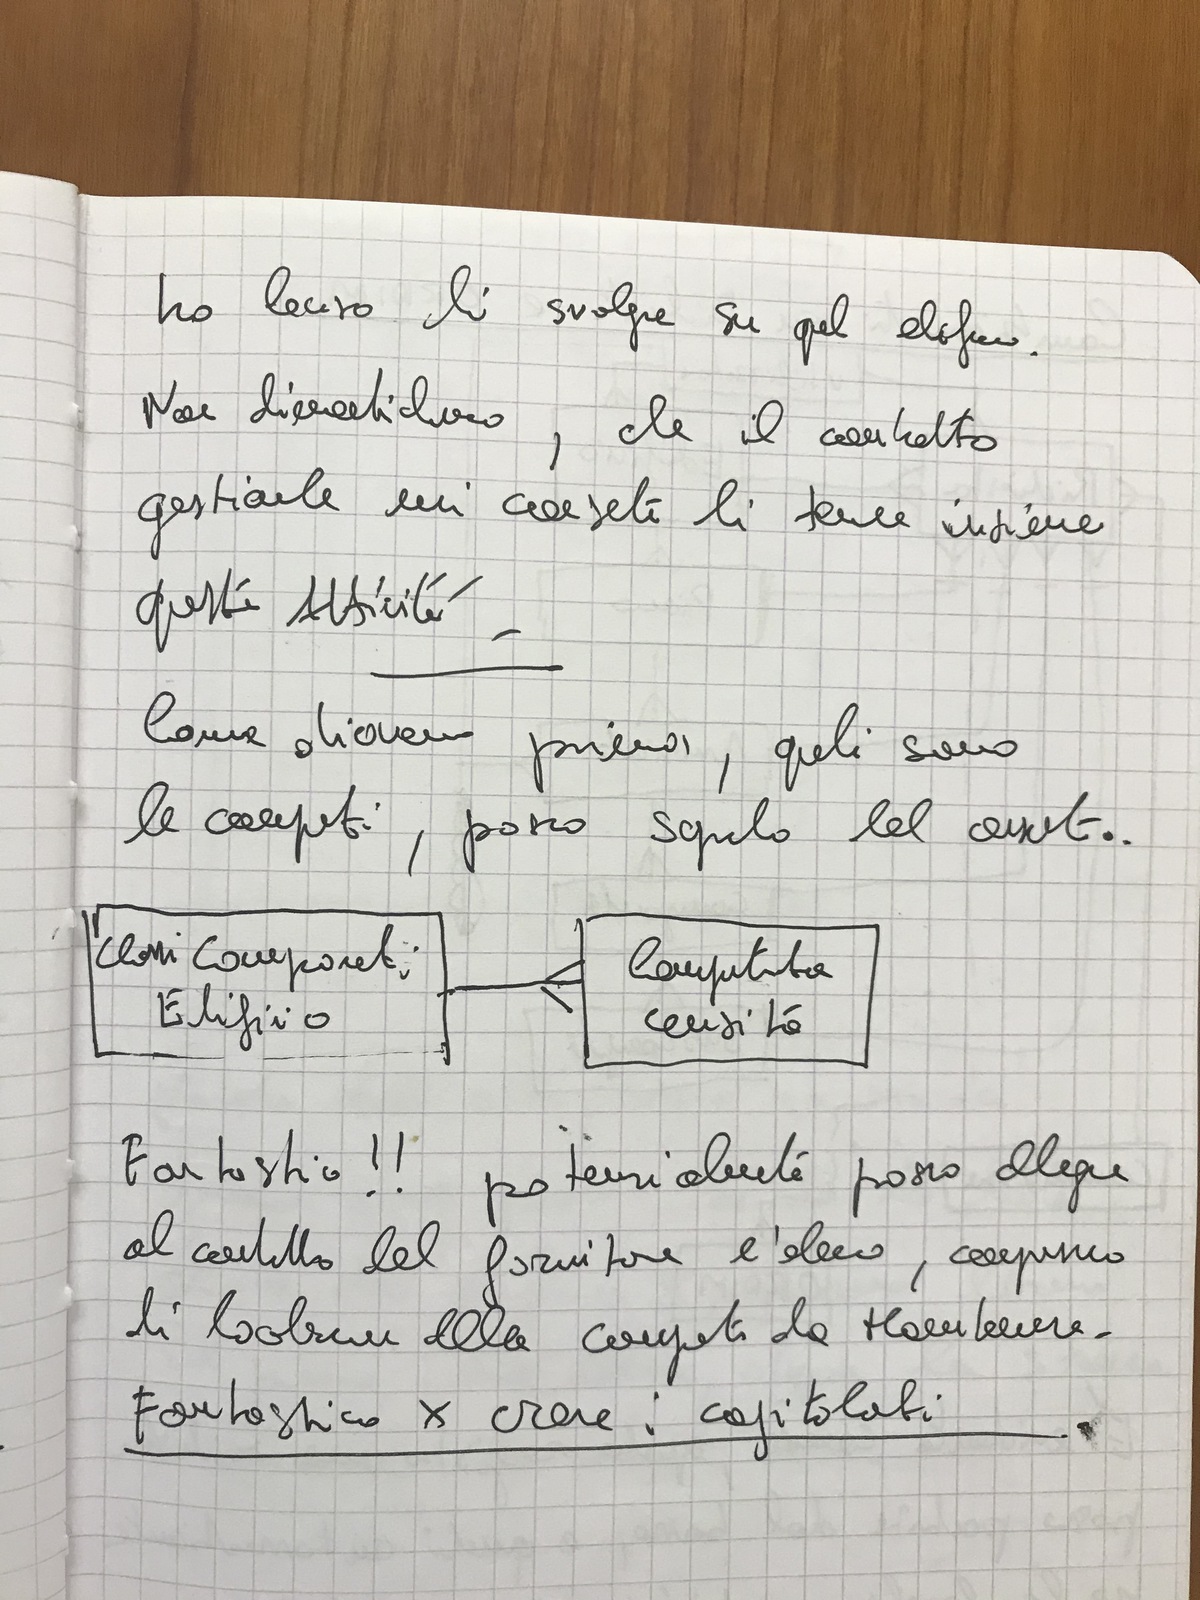 ho deciso di svolgere su quel edificio.
Non dimentichiamo, che il contratto
gestionale mi consente di tenere insieme
queste Attività
Come dicevamo prima, quali sono
le componenti, posso saperlo dal asset..
Classi Componenti
Edificio
Componente
censita
Fantastico!! potenzialmente posso allegare
al contratto del fornitore l'elenco, compreso
di location delle componenti da Mantenere.
Fantastico x creare i capitolati.